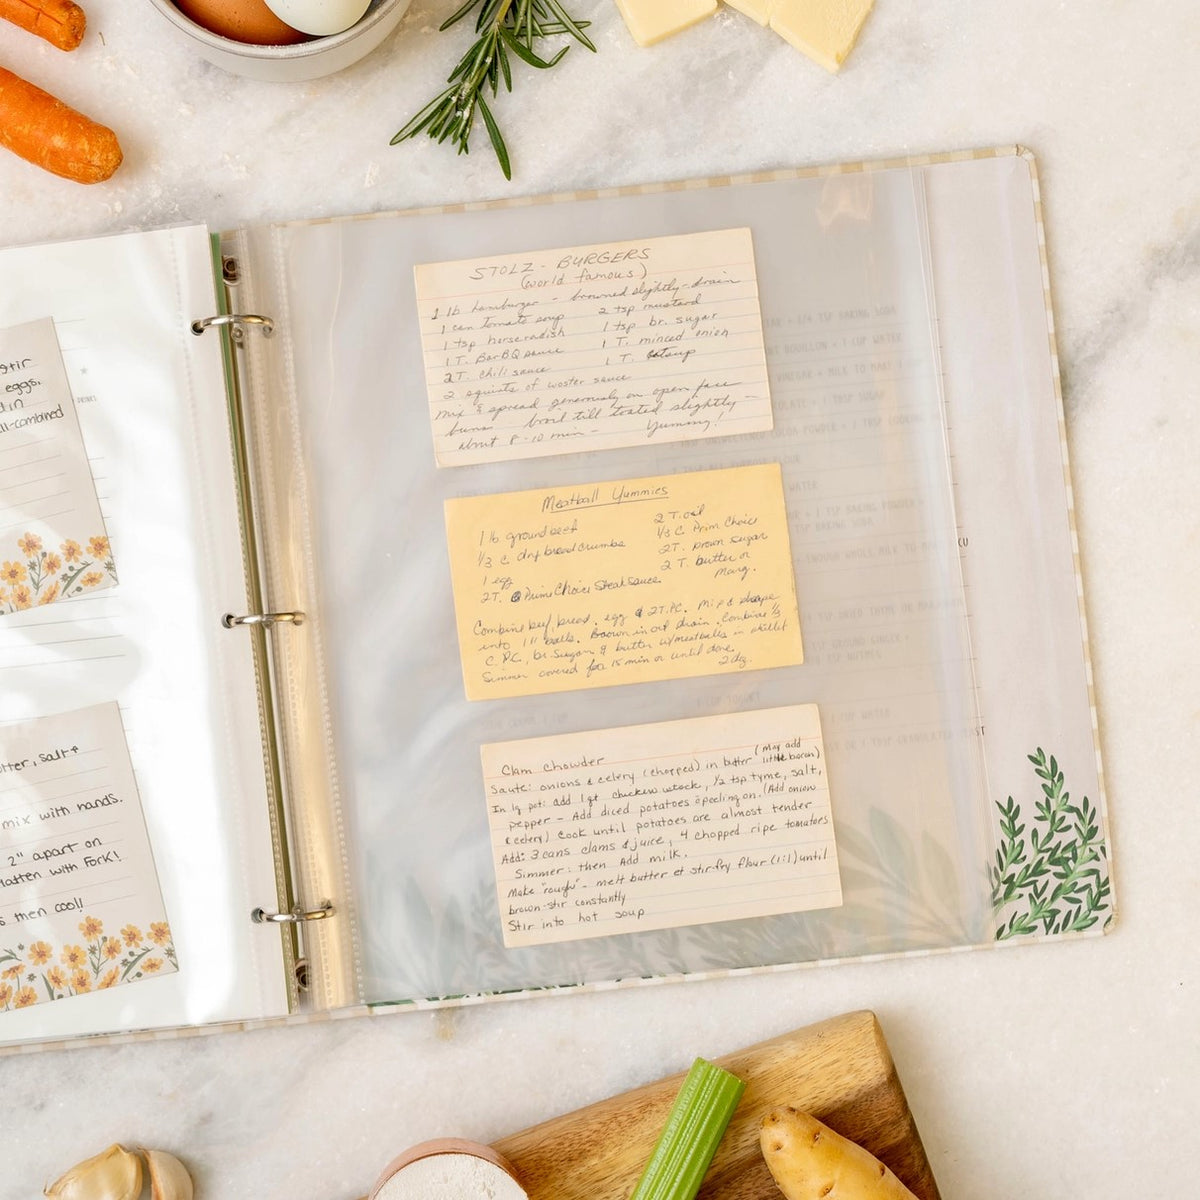 stir
eggs,
d in
ll-combined
DRINKS
tter, salt +
mix with hands.
2" apart on
latten with Fork!
s then cool!
STOLZ - BURGERS
(world famous)
1 lb hamburger - browned slightly - drain
1 can tomato soup
1 tsp horseradish
1 T. BarBQ sauce
2 T. chili sauce
2 squirts of woster sauce
2 tsp mustard
1 tsp br. sugar
1 T. minced onion
1 T. catsup
Mix & spread generously on open face
buns broil till toasted slightly -
about 8-10 min - Yummy!
Meatball Yummies
1 lb. ground beef
1/3 C dry bread crumbs
1 egg
2T. Prime Choice Steak sauce
2 T. oil
1/3 C Prim Choice
2T. brown sugar
2 T. butter or
Marg.
Combine beef, bread, egg & 2T.P.C. Mix & shape
into 1" balls. Brown in oil drain. Combine 1/3
C. P.C., br. sugar & butter w/meatballs in skillet
Simmer covered for 15 min or until done.
2 dz.
Clam Chowder
(May add
little bacon)
Saute: onions & celery (chopped) in butter
In lg pot: add 1 qt chicken stock, 1/2 tsp tyme, salt,
pepper - Add diced potatoes c̄ peeling on. (Add onion
& celery) Cook until potatoes are almost tender
Add: 3 cans clams & juice, 4 chopped ripe tomatoes
Simmer: then Add milk.
Make "rough" - melt butter et stir-fry flour (1:1) until
brown - stir constantly
Stir into hot soup
1/4 TSP BAKING SODA
BOUILLON + 1 CUP WATER
VINEGAR + MILK TO MAKE 1
+ 1 TBSP SUGAR
UNSWEETENED COCOA POWDER + 1 TBSP
WATER
+ 1 TSP BAKING POWDER +
TSP BAKING SODA
WHOLE MILK TO
CU
TSP DRIED THYME OR MARJORAM
TSP GROUND GINGER +
TSP NUTMEG
1 CUP YOGURT
1 CUP WATER
1 TBSP GRANULATED